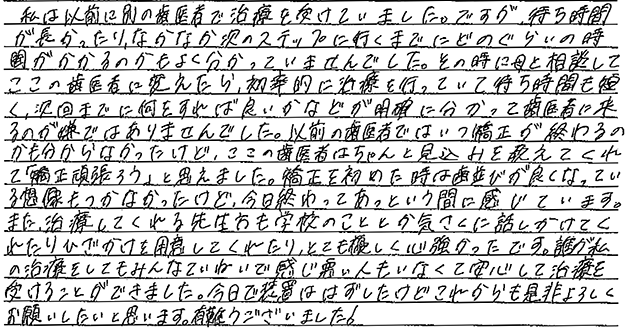 私は以前に別の歯医者で治療を受けていました。ですが、待ち時間
が長かったり、なかなか次のステップに行くまでにどのぐらいの時
間がかかるのかもよく分かっていませんでした。その時に母と相談して
ここの歯医者に変えたら、効率的に治療を行っていて待ち時間も短
く、次回までに何をすれば良いかなどが明確に分かって歯医者に来
るのが嫌ではありませんでした。以前の歯医者ではいつ矯正が終わるの
かも分からなかったけど、ここの歯医者はちゃんと見込みを教えてくれ
て「矯正頑張ろう」と思えました。矯正を初めた時は歯並びが良くなってい
る想像もつかなかったけど、今日終わってあっという間に感じています。
また、治療してくれる先生方も学校のこととか気さくに話しかけてく
れたりひざかけを用意してくれたり、とても優しく心強かったです。誰が私
の治療をしてもみんなていねいで感じ悪い人もいなくて安心して治療を
受けることができました。今日で装置ははずしたけどこれからも是非よろしく
お願いしたいと思います。有難うございました！